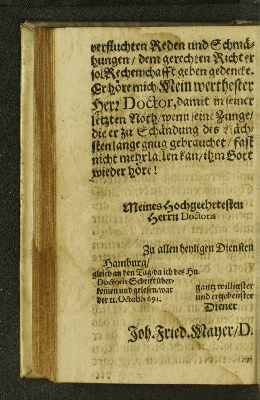 verfluchten Reden und Schmä-
hungen / dem gerechten Richter
sol Rechenschafft geben gedencke.
Er höre mich Mein werthester
Herr Doctor, damit in seiner
letzten Noth / wenn seine Zunge /
die er zu Schändung des Näch-
sten lange gnug gebrauchet / fast
nicht mehr lallen kan / ihm Gott
wieder höre!
Meines Hochgeehrtesten
Herrn Doctoris
Zu allen heyligen Diensten
Hamburg /
gleich an den Tag / da ich des Hn.
Doctoris Schrifft über-
kommen und gelesen / war
der 11. Octobr. 691.
gantz willigster
und ergebenster
Diener
Joh. Fried. Mayer / D.